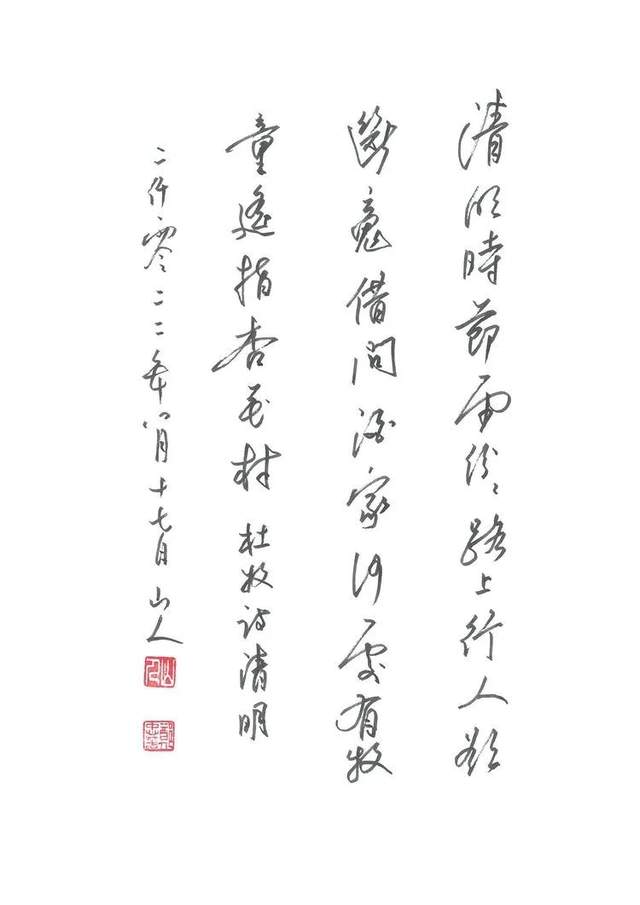 清明時節雨紛〻路上行人欲
斷魂借問酒家何處有牧
童遙指杏花村 杜牧詩清明
二仟零二二年八月十七日山人
山人